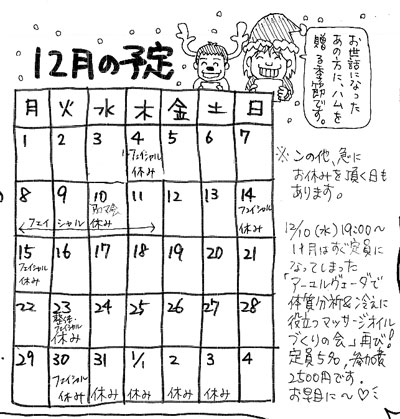 12月の予定
お世話になった
あの方に、ハムを
贈る季節です。
月 火 水 木 金 土 日
1 2 3 4 5 6 7
フェイシャル
休み
8 9 10 11 12 13 14
フェイシャル
休み
フェイシャル
休み
15 16 17 18 19 20 21
フェイシャル
休み
22 23 24 25 26 27 28
整体・
フェイシャル
休み
29 30 31 1/1 2 3 4
フェイシャル
休み 休み 休み 休み 休み
※その他、急に
お休みを頂く日も
あります。
12/10(水)19:00〜
11月はすぐ定員に
なってしまった
「アーユルヴェーダで
体質分析&冷えに
役立つマッサージオイル
づくりの会」再び!
定員5名,参加費
2500円です。
お早目に〜♡